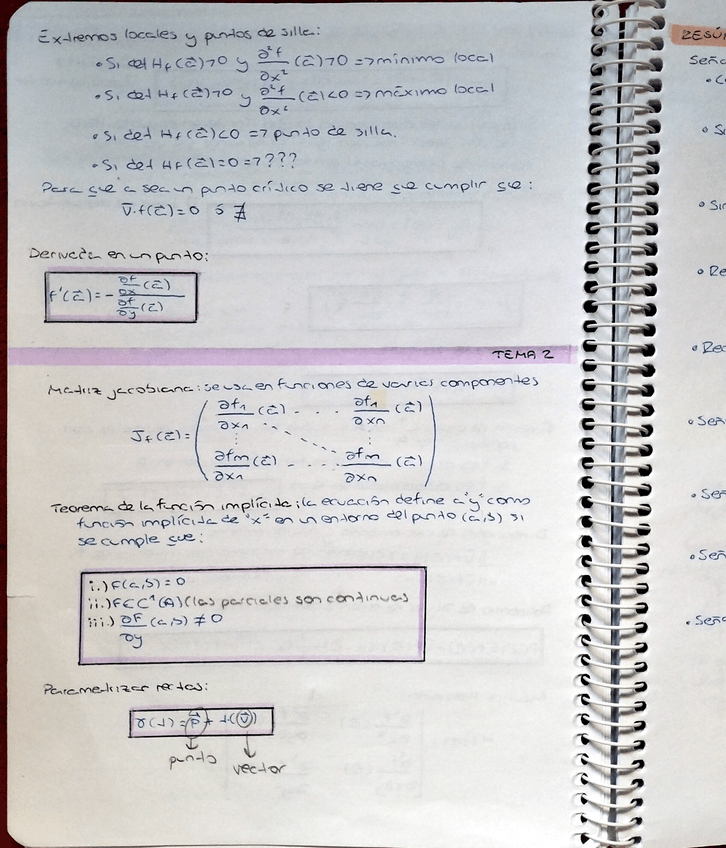 Extremos locales y puntos de silla:
• Si det Hf(a⃗)>0 y ∂²f/∂x² (a⃗)>0 => mínimo local
• Si det Hf(a⃗)>0 y ∂²f/∂x² (a⃗)<0 => máximo local
• Si det Hf(a⃗)<0 => punto de silla.
• Si det Hf(a⃗)=0 => ???
Para que a sea un punto crítico se tiene que cumplir que:
∇f(a⃗)=0 ó ∄
Derivada en un punto:
f'(a⃗) = - ∂f/∂x (a⃗) / ∂f/∂y (a⃗)
TEMA 2
Matriz jacobiana: se usa en funciones de varias componentes
∂f1/∂x1 (a⃗) . . . ∂f1/∂xn (a⃗)
Jf(a⃗) =
∂fm/∂x1 (a⃗) . . . ∂fm/∂xn (a⃗)
Teorema de la función implícita: la ecuación define a "y" como
función implícita de "x" en un entorno del punto (a,b) si
se cumple que:
i.) F(a,b)=0
ii.) F∈C¹(A) (las parciales son continuas
iii.) ∂F/∂y (a,b) ≠ 0
Parametrizar rectas:
γ(t) = p⃗ + t(v⃗)
punto vector
RESÚ
Seña
• Si
• Sin
• Re
• Rec
• Señ
• Señ
• Señ
• Seña